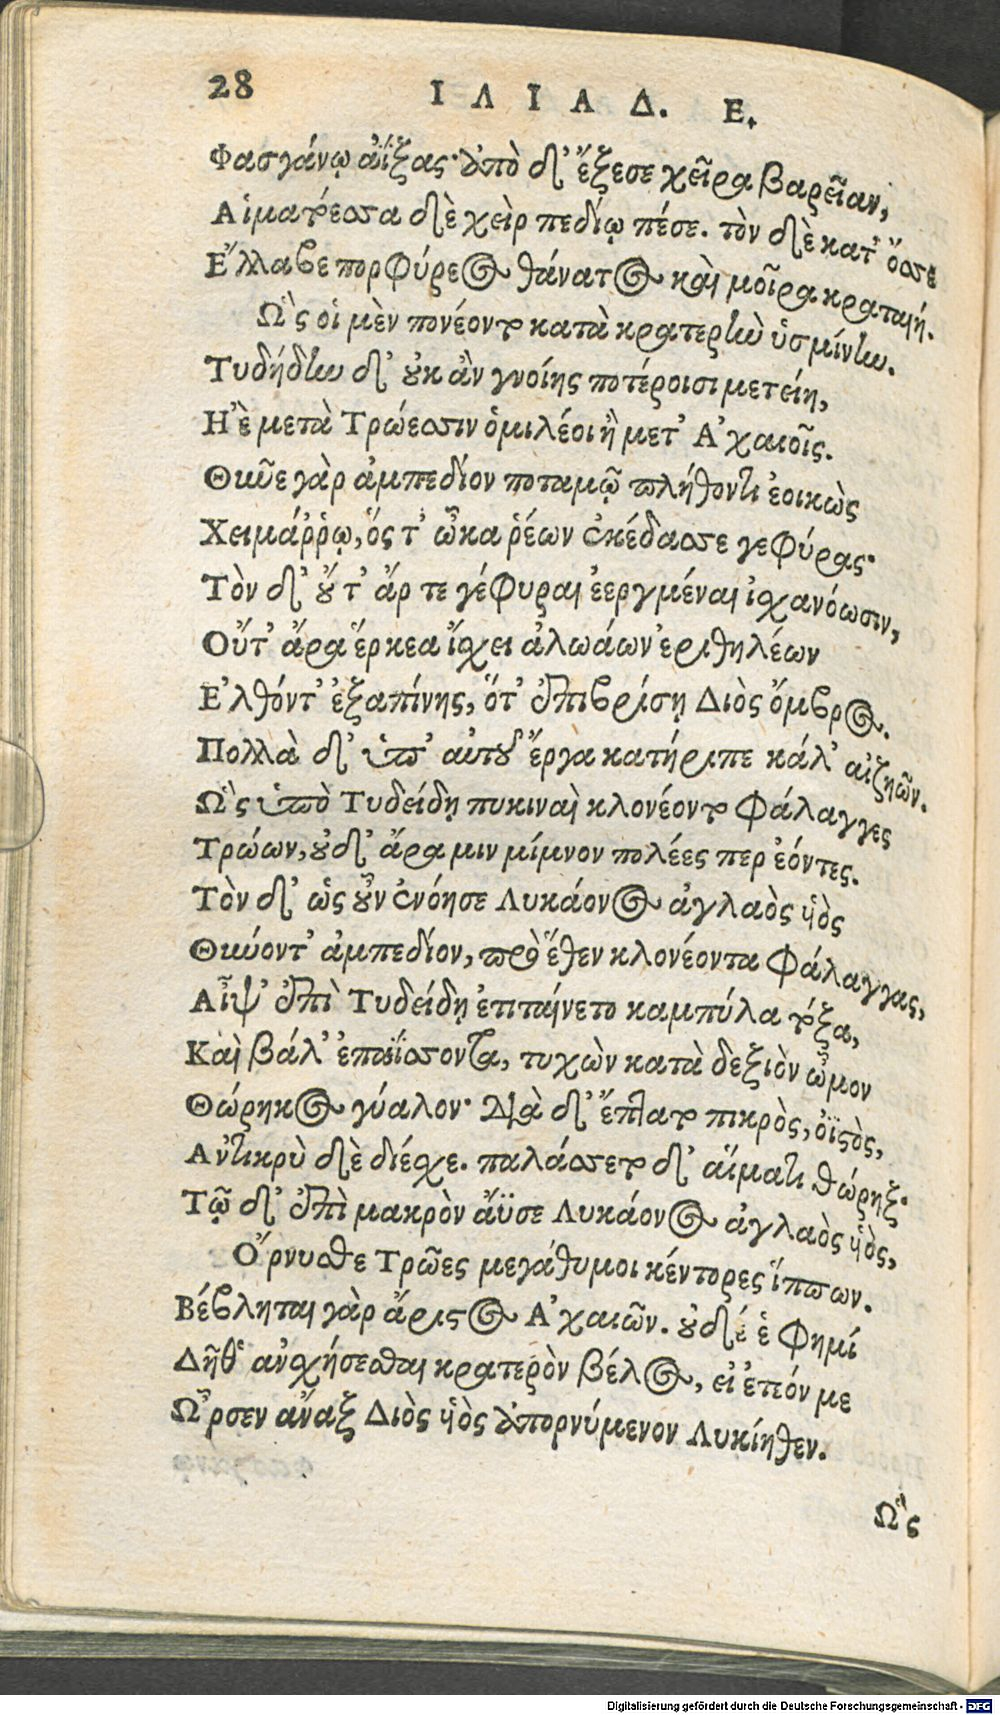 28
ΙΛΙΑΔ. Ε.
Φασγάνῳ ἀΐξας· ἀπὸ δ' ἔξεσε χεῖρα βαρεῖαν,
Αἱματόεσσα δὲ χεὶρ πεδίῳ πέσε. τὸν δὲ κατ' ὄσσε
Ἔλλαβε πορφύρεος θάνατος καὶ μοῖρα κραταιή.
Ὣς οἱ μὲν πονέοντο κατὰ κρατερὴν ὑσμίνην.
Τυδείδην δ' οὐκ ἂν γνοίης ποτέροισι μετείη,
Ἠὲ μετὰ Τρώεσσιν ὁμιλέοι ἢ μετ' Ἀχαιοῖς.
Θῦνε γὰρ ἀμπεδίον ποταμῷ πλήθοντι ἐοικὼς
Χειμάῤῥῳ, ὅς τ' ὦκα ῥέων ἐκέδασσε γεφύρας·
Τὸν δ' οὔτ' ἄρ τε γέφυραι ἐεργμέναι ἰσχανόωσιν,
Οὔτ' ἄρα ἕρκεα ἴσχει ἀλωάων ἐριθηλέων
Ἐλθόντ' ἐξαπίνης, ὅτ' ἐπιβρίσῃ Διὸς ὄμβρος.
Πολλὰ δ' ὑπ' αὐτοῦ ἔργα κατήριπε κάλ' αἰζηῶν.
Ὣς ὑπὸ Τυδείδῃ πυκιναὶ κλονέοντο φάλαγγες
Τρώων, οὐδ' ἄρα μιν μίμνον πολέες περ ἐόντες.
Τὸν δ' ὡς οὖν ἐνόησε Λυκάονος ἀγλαὸς υἱὸς
Θύοντ' ἀμπεδίον, πρὸ ἕθεν κλονέοντα φάλαγγας,
Αἶψ' ἐπὶ Τυδείδῃ ἐτιταίνετο καμπύλα τόξα,
Καὶ βάλ' ἐπαΐσσοντα, τυχὼν κατὰ δεξιὸν ὦμον
Θώρηκος γύαλον· διὰ δ' ἔπτατο πικρὸς, ὀϊστὸς,
Ἀντικρὺ δὲ διέσχε. παλάσσετο δ' αἵματι θώρηξ·
Τῷ δ' ἐπὶ μακρὸν ἄϋσε Λυκάονος ἀγλαὸς υἱὸς,
Ὄρνυσθε Τρῶες μεγάθυμοι κέντορες ἵππων.
Βέβληται γὰρ ἄριστος Ἀχαιῶν. οὐδέ ἑ φημί
Δῆθ' ἀνσχήσεσθαι κρατερὸν βέλος, εἰ ἐτεόν με
Ὦρσεν ἄναξ Διὸς υἱὸς ἀπορνύμενον Λυκίηθεν.
Ὣς
Digitalisierung gefördert durch die Deutsche Forschungsgemeinschaft - DFG